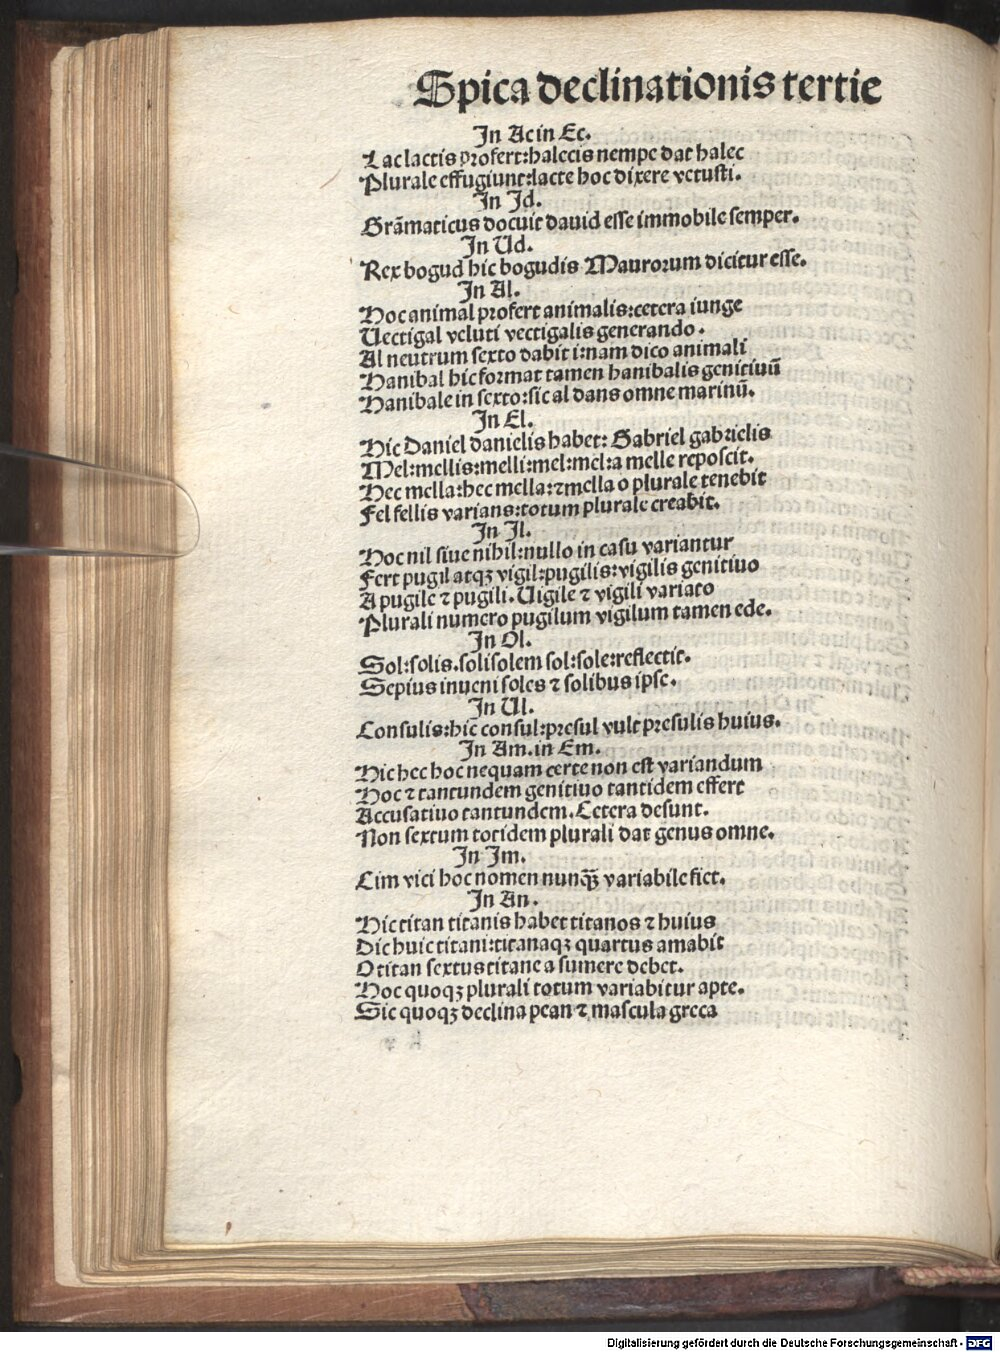 Spica declinationis tertie
In Ac in Ec.
Lac lactis profert:halecis nempe dat halec
Plurale effugiunt:lacte hoc dixere vetusti.
In Id.
Grãmaticus docuit dauid esse immobile semper.
In Ud.
Rex bogud hic bogudis Maurorum dicitur esse.
In Al.
Hoc animal profert animalis:cetera iunge
Uectigal veluti vectigalis generando.
Al neutrum sexto dabit i:nam dico animali
Hanibal hic format tamen hanibalis genitiuũ
Hanibale in sexto:sic al dans omne marinũ.
In El.
Hic Daniel danielis habet: Gabriel gabrielis
Mel:mellis:melli:mel:mel:a melle reposcit.
Hec mella:hec mella:⁊ mella o plurale tenebit
Fel fellis varians:totum plurale creabit.
In Il.
Hoc nil siue nihil:nullo in casu variantur
Fert pugil atqꝫ vigil:pugilis:vigilis genitiuo
A pugile ⁊ pugili. Uigile ⁊ vigili variato
Plurali numero pugilum vigilum tamen ede.
In Ol.
Sol:solis.soli solem sol:sole:reflectit.
Sepius inueni soles ⁊ solibus ipse.
In Ul.
Consulis:hic consul:presul vult presulis huius.
In Am.in Em.
Hic hec hoc nequam certe non est variandum
Hoc ⁊ tantundem genitiuo tantidem effert
Accusatiuo tantundem. Cetera desunt.
Non sextum totidem plurali dat genus omne.
In Im.
Cim vici hoc nomen nunqꝫ̃ variabile fiet.
In An.
Hic titan titanis habet titanos ⁊ huius
Dic huic titani:titanaqꝫ quartus amabit
O titan sextus titane a sumere debet.
Hoc quoqꝫ plurali totum variabitur apte.
Sic quoqꝫ declina pean ⁊ mascula greca
Digitalisierung gefördert durch die Deutsche Forschungsgemeinschaft - DFG